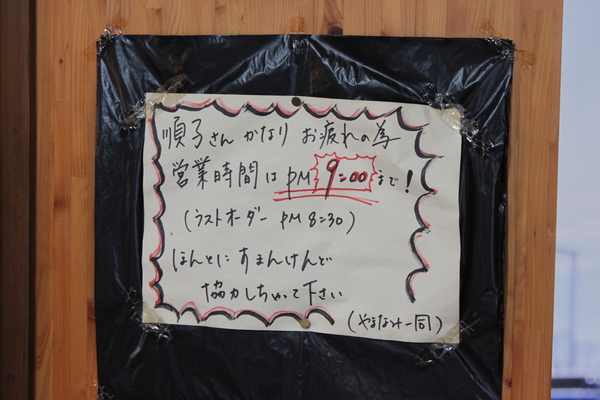 順子さん かなり お疲れの為
営業時間は PM 9:00 まで!
(ラストオーダー PM 8:30)
ほんとに すまんけんど
協力しちゃって下さい
(やまなみ一同)